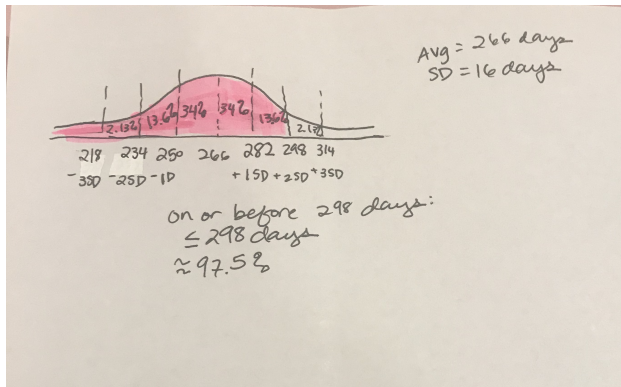 Avg = 266 days
SD = 16 days
2.13% 13.6% 34% 34% 13.6% 2.1%
218 234 250 266 282 298 314
-3SD -2SD -1D +1SD +2SD +3SD
on or before 298 days:
≤ 298 days
≈ 97.5%